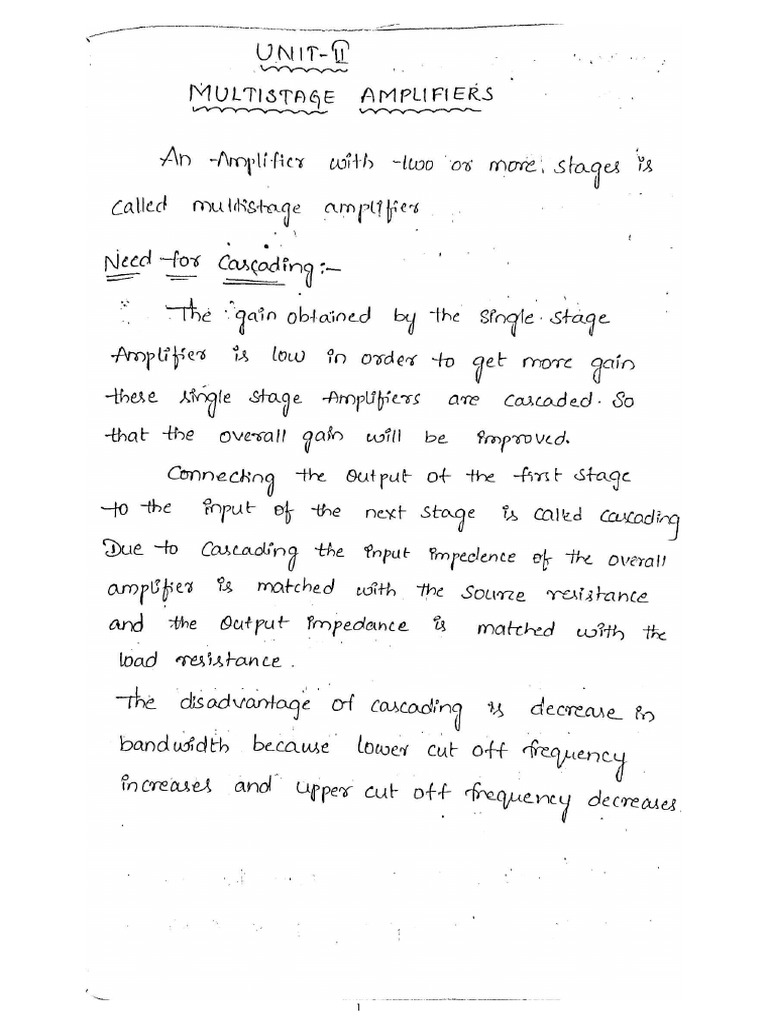 UNIT-II
MULTISTAGE AMPLIFIERS
An Amplifier with two or more stages is
called multistage amplifier
Need for Cascading:-
The gain obtained by the single stage
Amplifier is low in order to get more gain
these single stage Amplifiers are cascaded. So
that the overall gain will be improved.
Connecting the output of the first stage
to the input of the next stage is called cascading
Due to cascading the input impedence of the overall
amplifier is matched with the source resistance
and the output impedance is matched with the
load resistance.
The disadvantage of cascading is decrease in
bandwidth because lower cut off frequency
increases and upper cut off frequency decreases.
1